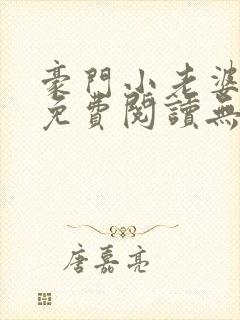 豪門小老婆
免費閱讀無
唐嘉亮